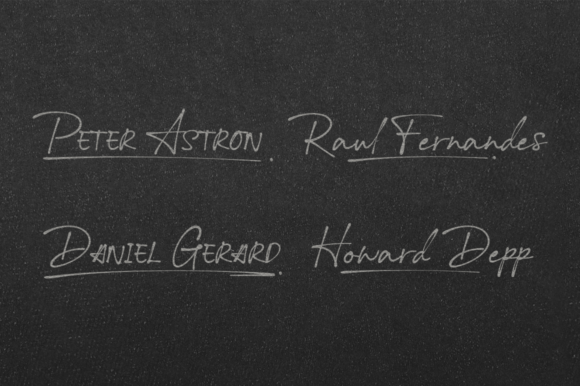 Peter Astron. Raul Fernandes.
Daniel Gerard. Howard Depp.